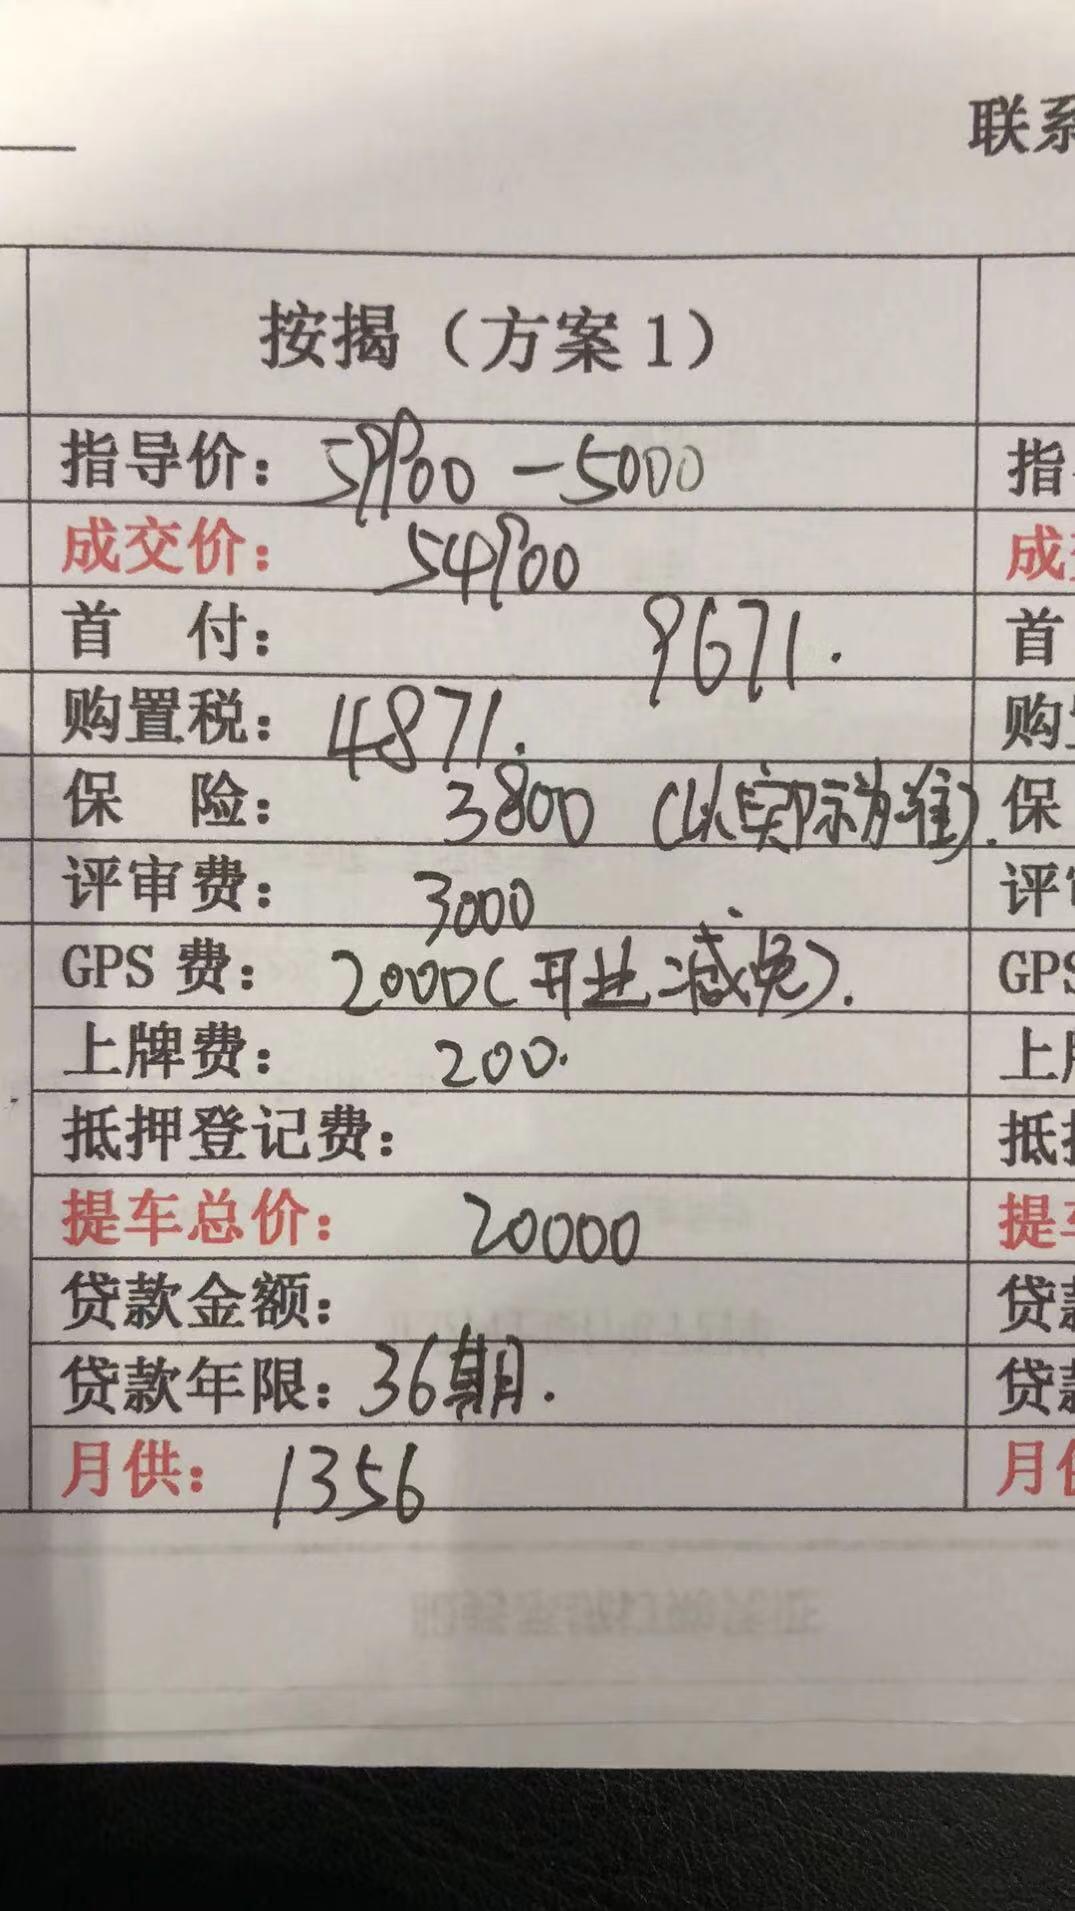 联系
按揭（方案1）
指导价：59900-5000
成交价：54900
首 付：9671.
购置税：4871.
保 险：3800（以实际为准）.
评审费：3000
GPS费：2000（开业减免）.
上牌费：200.
抵押登记费：
提车总价：20000
贷款金额：
贷款年限：36期.
月供：1356
指
成
首
购
保
评
GPS
上
抵
提
贷
贷
月